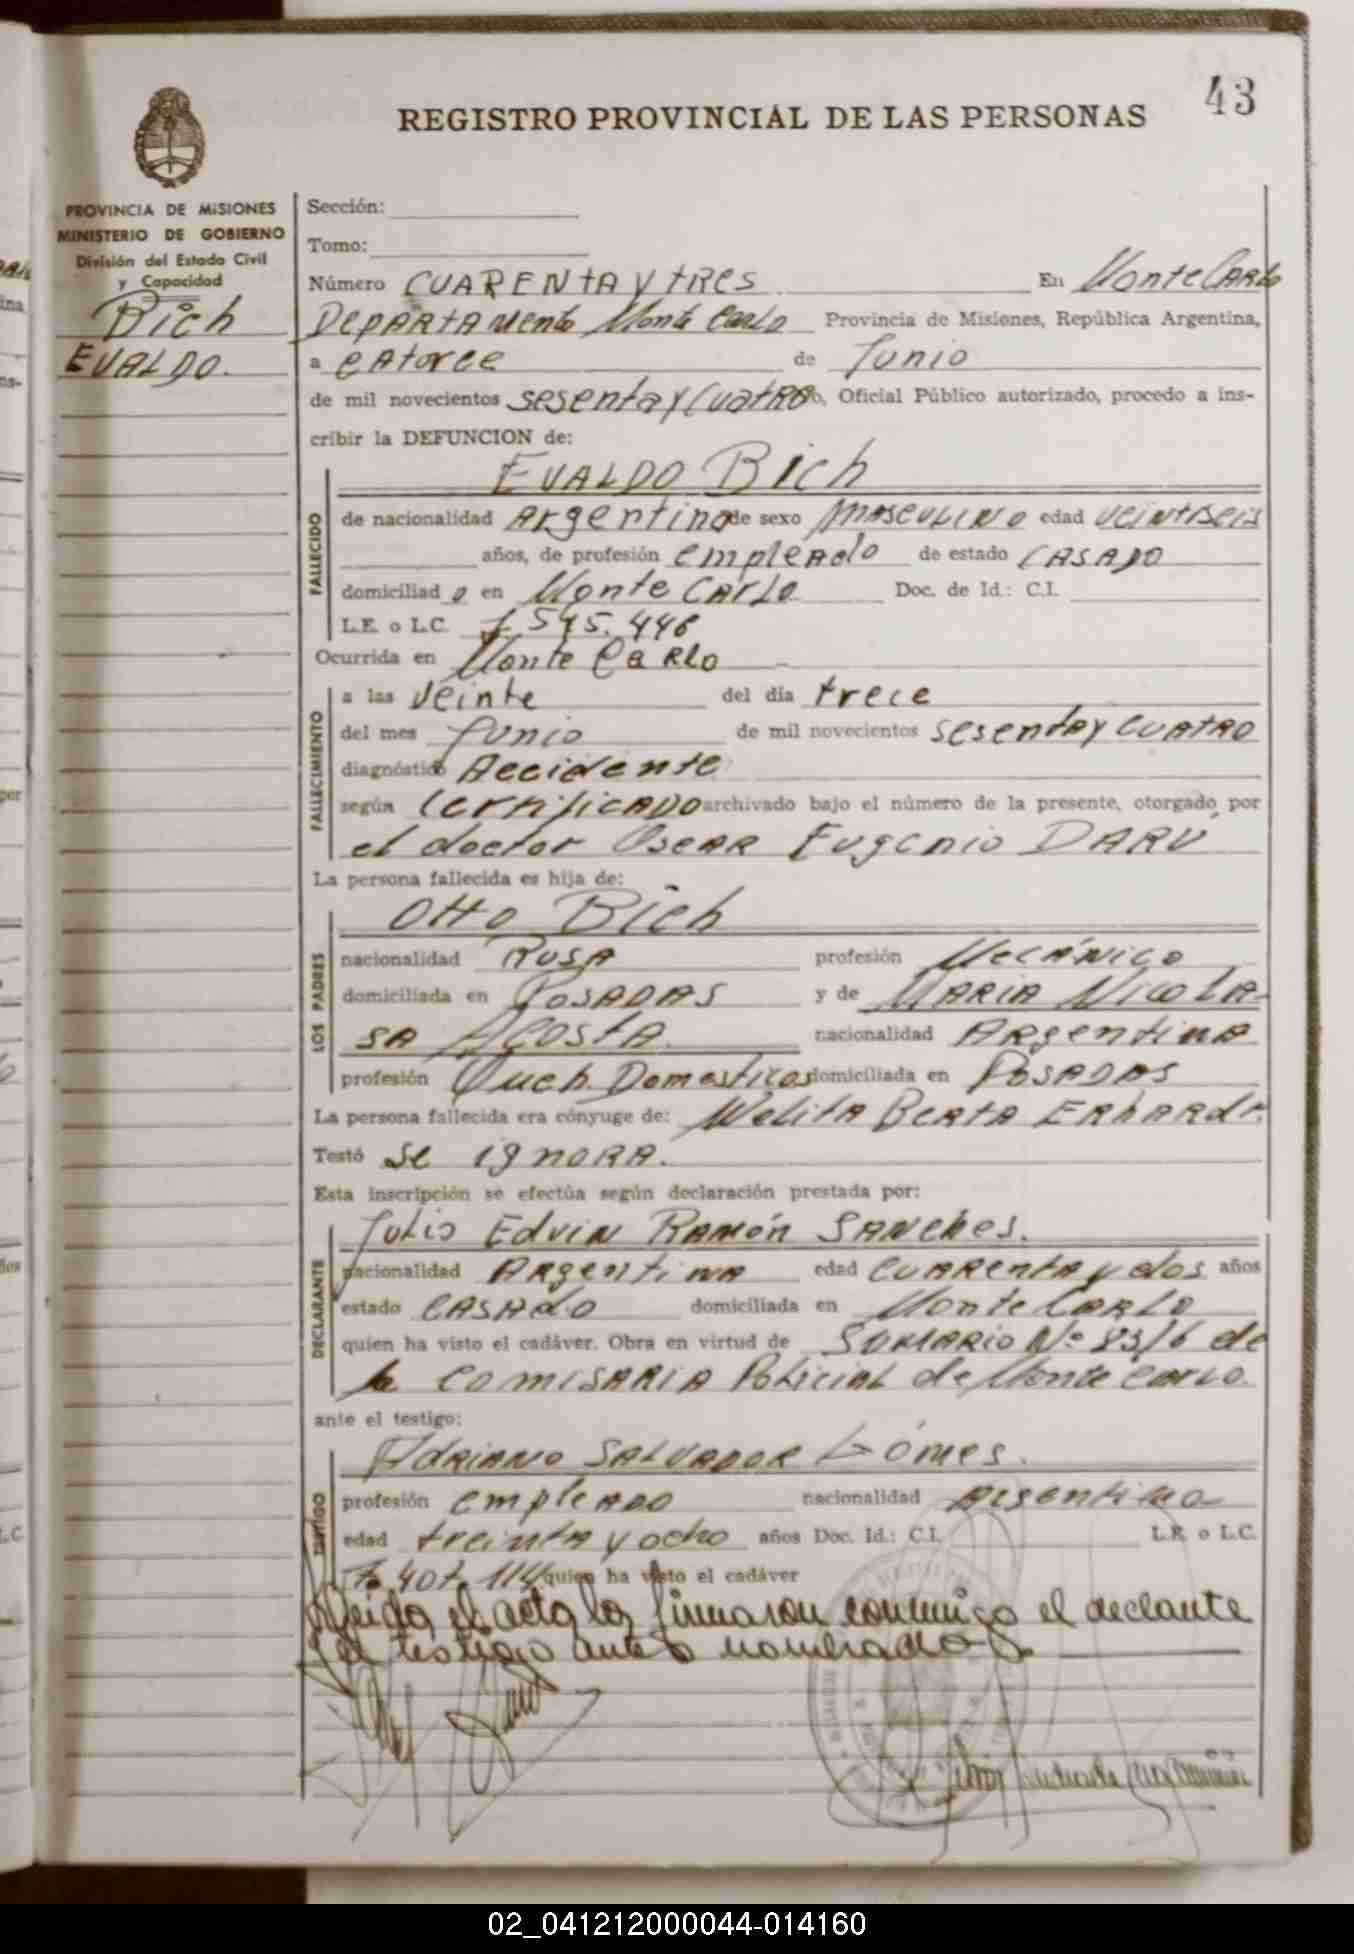 43
REGISTRO PROVINCIAL DE LAS PERSONAS
PROVINCIA DE MISIONES
MINISTERIO DE GOBIERNO
División del Estado Civil
y Capacidad
Bich
EVALDO.
Sección:
Tomo:
Número CUARENTA Y TRES En Monte CARLO
DEPARTAMENTO Monte Carlo Provincia de Misiones, República Argentina,
a CAtorce de Junio
de mil novecientos sesenta y cuatro, Oficial Público autorizado, procedo a ins-
cribir la DEFUNCION de:
EVALDO Bich
FALLECIDO
de nacionalidad Argentino de sexo MASCULINO edad veintiseis
años, de profesión empleado de estado CASADO
domiciliado en Monte CARLO Doc. de Id.: C.I.
L.E. o L.C.
Ocurrida en Monte CaRLo
FALLECIMIENTO
a las veinte del día trece
del mes Junio de mil novecientos sesenta y cuatro
diagnóstico Accidente
según Certificado archivado bajo el número de la presente, otorgado por
el doctor OSCAR Eugenio DARU
La persona fallecida es hija de:
Otto Bich
LOS PADRES
nacionalidad RUSA profesión Mecánico
domiciliada en POSADAS y de MARIA NICOLA-
SA ACOSTA. nacionalidad Argentina
profesión Queh. Domesticos domiciliada en POSADAS
La persona fallecida era cónyuge de: Welita Berta ERHARDt.
Testó se ignora.
Esta inscripción se efectúa según declaración prestada por:
Julio Edvin Ramón SANCHES.
DECLARANTE
nacionalidad Argentina edad cuarenta y dos años
estado CASADO domiciliada en Monte Carlo
quien ha visto el cadáver. Obra en virtud de SUMARIO Nº 83/6 de
la COMISARIA Policial de Monte Carlo.
ante el testigo:
ADRIANO SALVADOR Gómes.
TESTIGO
profesión empleado nacionalidad Argentino
edad treinta y ocho años Doc. Id.: C.I. L.E. o L.C.
7.407.114 quien ha visto el cadáver
Leida el acta la firmaron conmigo el declante
y el testigo antes nombrados
02_041212000044-014160